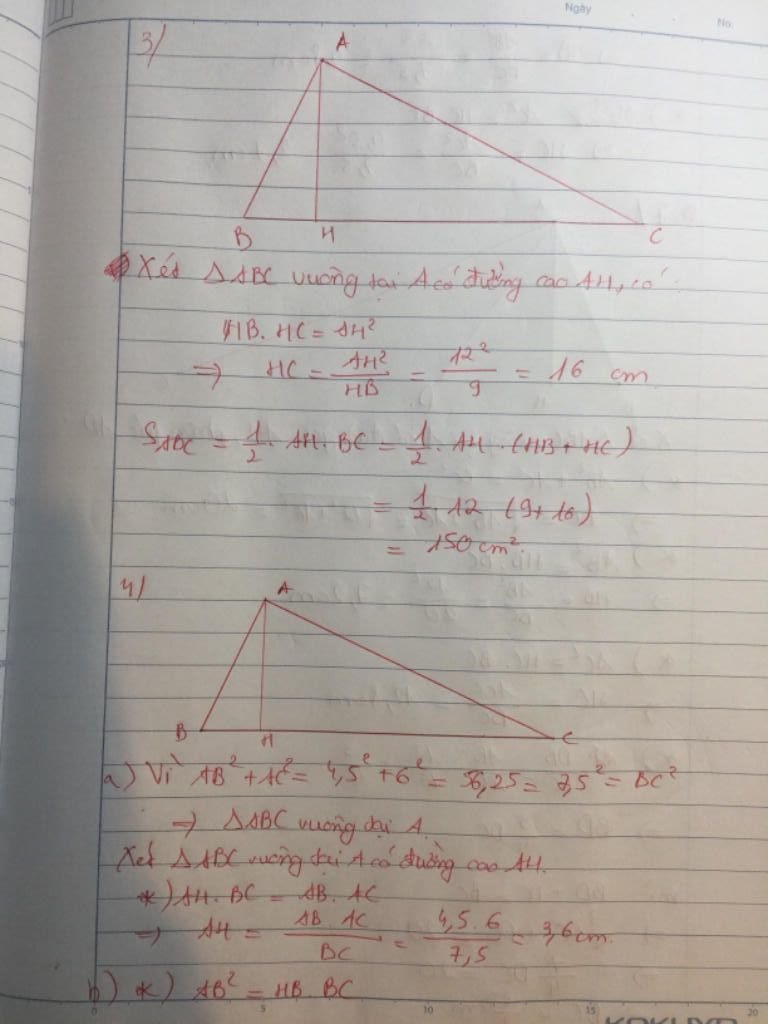 Ngày
No.
3/
A
B
H
C
Xét △ABC vuông tại A có đường cao AH, có:
HB. HC = AH²
=> HC = AH²/HB = 12²/9 = 16 cm
S_ABC = 1/2 . AH . BC = 1/2 . AH . (HB + HC)
= 1/2 . 12 (9+16)
= 150 cm².
4/
A
B
H
C
a) Vì AB² + AC² = 4,5² + 6² = 56,25 = 7,5² = BC²
=> △ABC vuông tại A.
Xét △ABC vuông tại A có đường cao AH.
*) AH . BC = AB . AC
=> AH = AB . AC/BC = 4,5 . 6/7,5 = 3,6 cm.
b) *) AB² = HB . BC
0 5 10 15 20
KOKUYO